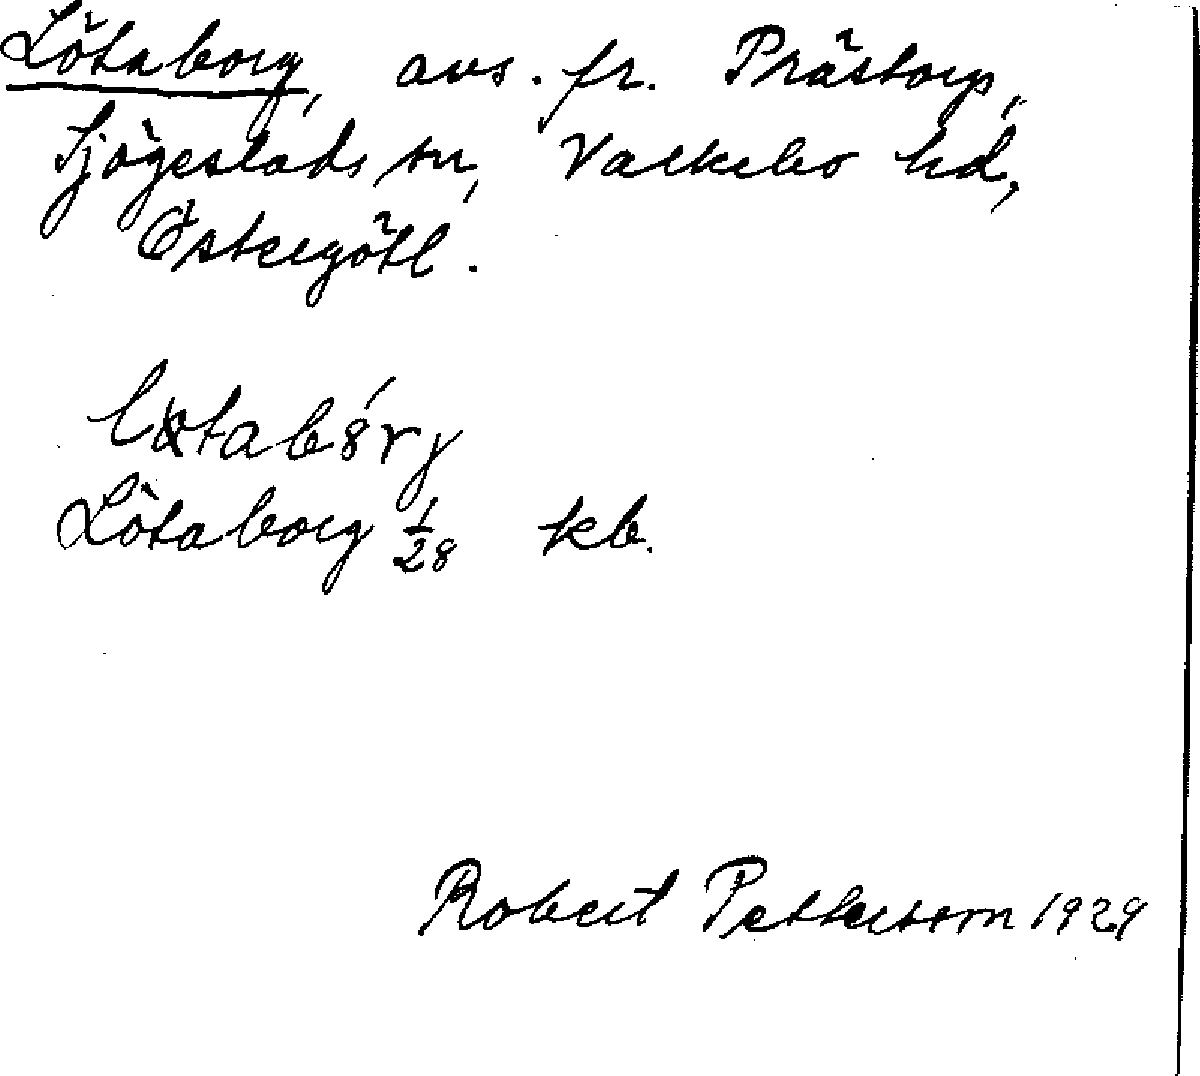 Lötaborg, avs. fr. Prästorp,
Sjögestads sn, Valkebo hd,
Östergötl.
Lötaborg 1/28 kb.
Robert Pettersson 1929